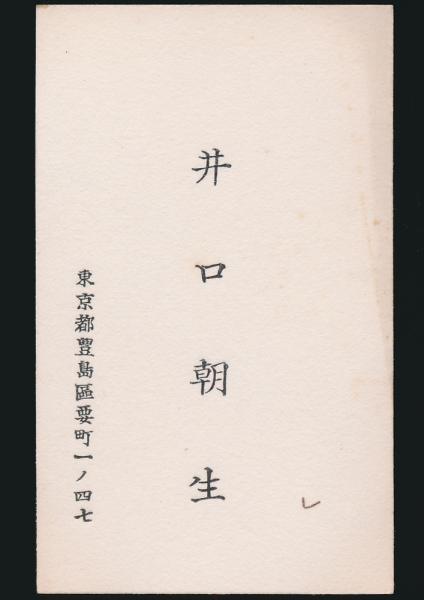 井口朝生
東京都豊島區要町一ノ四七